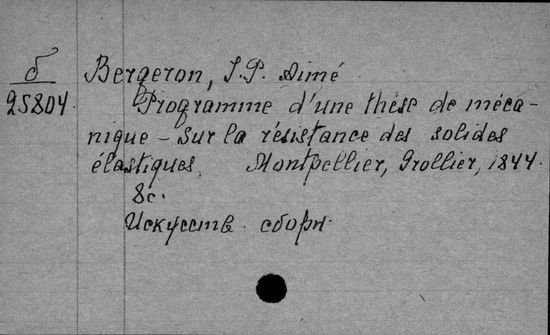 б
25804.
Bergeron, J.P. Aimé
Programme d'une thèse de méca-
nique – sur la résistance des solides
élastiques. Montpellier, Grollier, 1844.
8c.
Искусств. сборн.